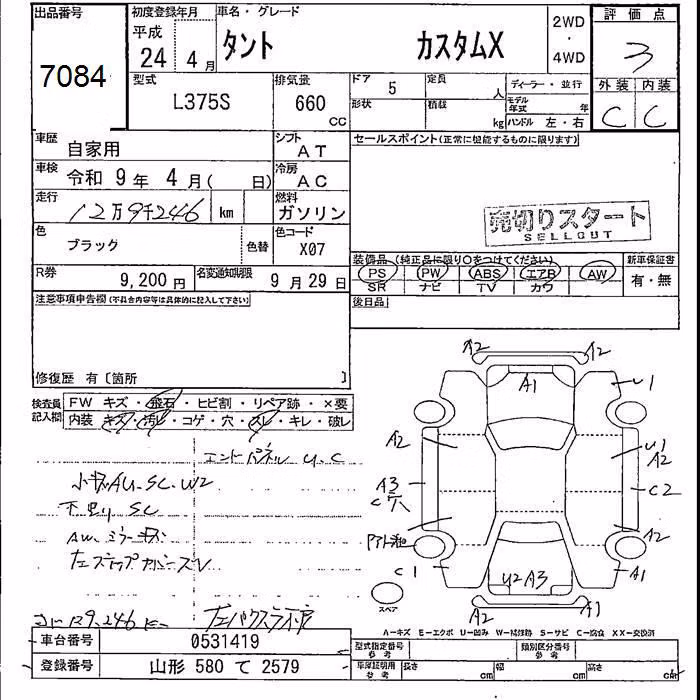 出品番号
7084
初度登録年月
平成
24 4月
車名・グレード
タント カスタムX
2WD
・
4WD
評価点
3
外装 内装
C C
型式
L375S
排気量
660
CC
ドア 5
定員 人
形状
積載 kg
ディーラー・並行
モデル年式 年
ハンドル 左・右
車歴
自家用
シフト
AT
セールスポイント(正常に機能するものに限ります)
車検
令和 9年 4月( 日)
冷房
AC
走行
12万9千246 km
燃料
ガソリン
売切りスタート
SELLOUT
色
ブラック
色替
色コード
X07
装備品 (純正品に限り○をつけてください)
新車保証書
PS PW ABS エアB AW
有・無
SR ナビ TV カワ
R券
9,200円
名変通知期限
9月29日
後日品
注意事項申告欄(不具合内容等は具体的に記入して下さい)
修復歴 有〔箇所 〕
検査員
記入欄
FW キズ・飛石・ヒビ割・リペア跡・×要
内装・キズ・汚レ・コゲ・穴・スレ・キレ・破レ
エンドパネル U.C
小キズAU.SC.W2
下廻リ SC
AW.ミラーキズ
左ステップカバーズレ
A2 A2
A1
U1
A2
U1
A2
A3
C穴
C2
A2
C1
U2 A3
A1
A2 A1
スペア
A-キズ E-エクボ U-凹み W-補修跡 S-サビ C-腐食 XX-交換済
129.246 km
車台番号 0531419
登録番号 山形 580 て 2579
型式指定番号
参考
類別区分番号
参考
車庫証明用
参考
長さ cm 幅 cm 高さ cm